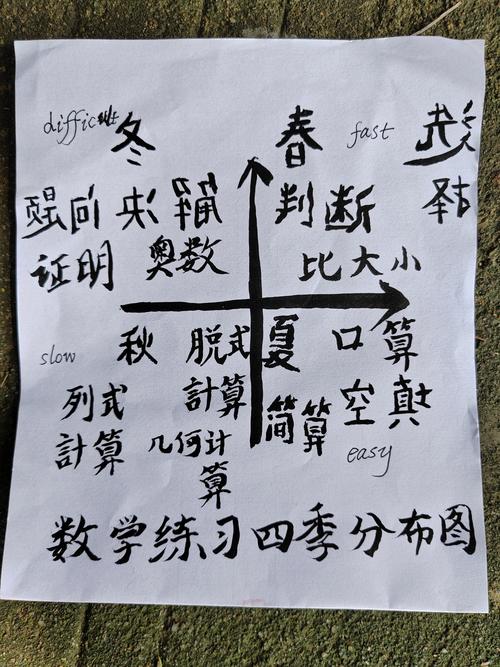 difficult 冬
题 问 决 解
证明 奥数
春 fast
判断
比大小
选
择
slow 秋 脱式
計算
列式
計算
几何计
算
夏 口算
简算
空填
easy
数学练习四季分布图